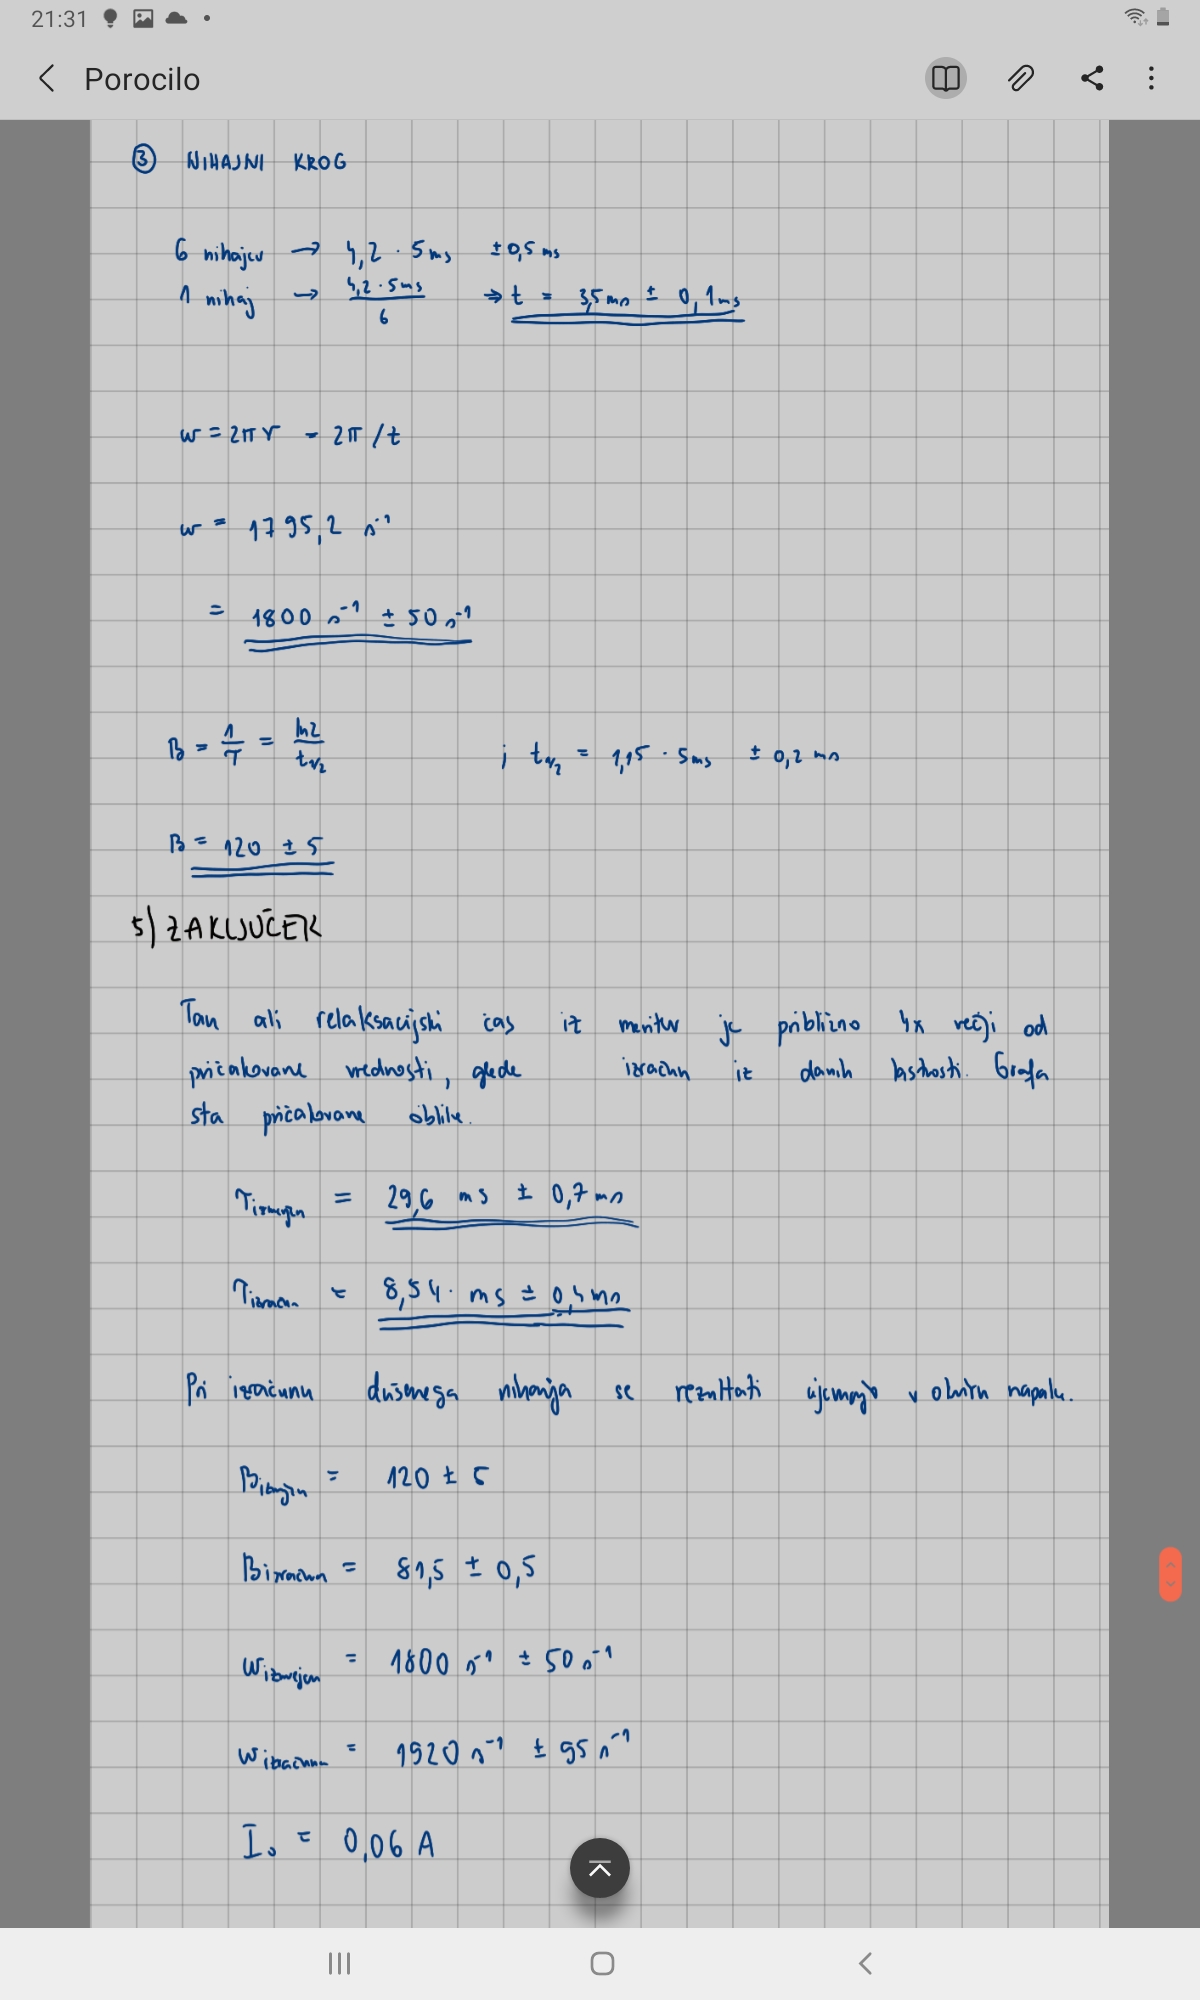 21:31
Porocilo
3 NIHAJNI KROG
6 nihajev → 4,2 · 5ms ± 0,5 ms
1 nihaj → 4,2 · 5ms / 6 ⇒ t = 3,5 ms ± 0,1 ms
w = 2πν = 2π / t
w = 1795,2 s⁻¹
= 1800 s⁻¹ ± 50 s⁻¹
B = 1/τ = ln2 / t1/2 ; t1/2 = 1,15 · 5ms ± 0,2 ms
B = 120 ± 5
5) ZAKLJUČEK
Tau ali relaksacijski čas iz meritev je približno 4x večji od
pričakovane vrednosti, glede izračun iz danih lastnosti. Grafa
sta pričakovane oblike.
τizmerjen = 29,6 ms ± 0,7 ms
τizračun = 8,54 · ms ± 0,4 ms
Pri izračunu dušenega nihanja se rezultati ujemajo v okviru napake.
Bizmerjen = 120 ± 5
Bizračun = 81,5 ± 0,5
wizmerjen = 1800 s⁻¹ ± 50 s⁻¹
wizračunan = 1920 s⁻¹ ± 95 s⁻¹
I₀ = 0,06 A